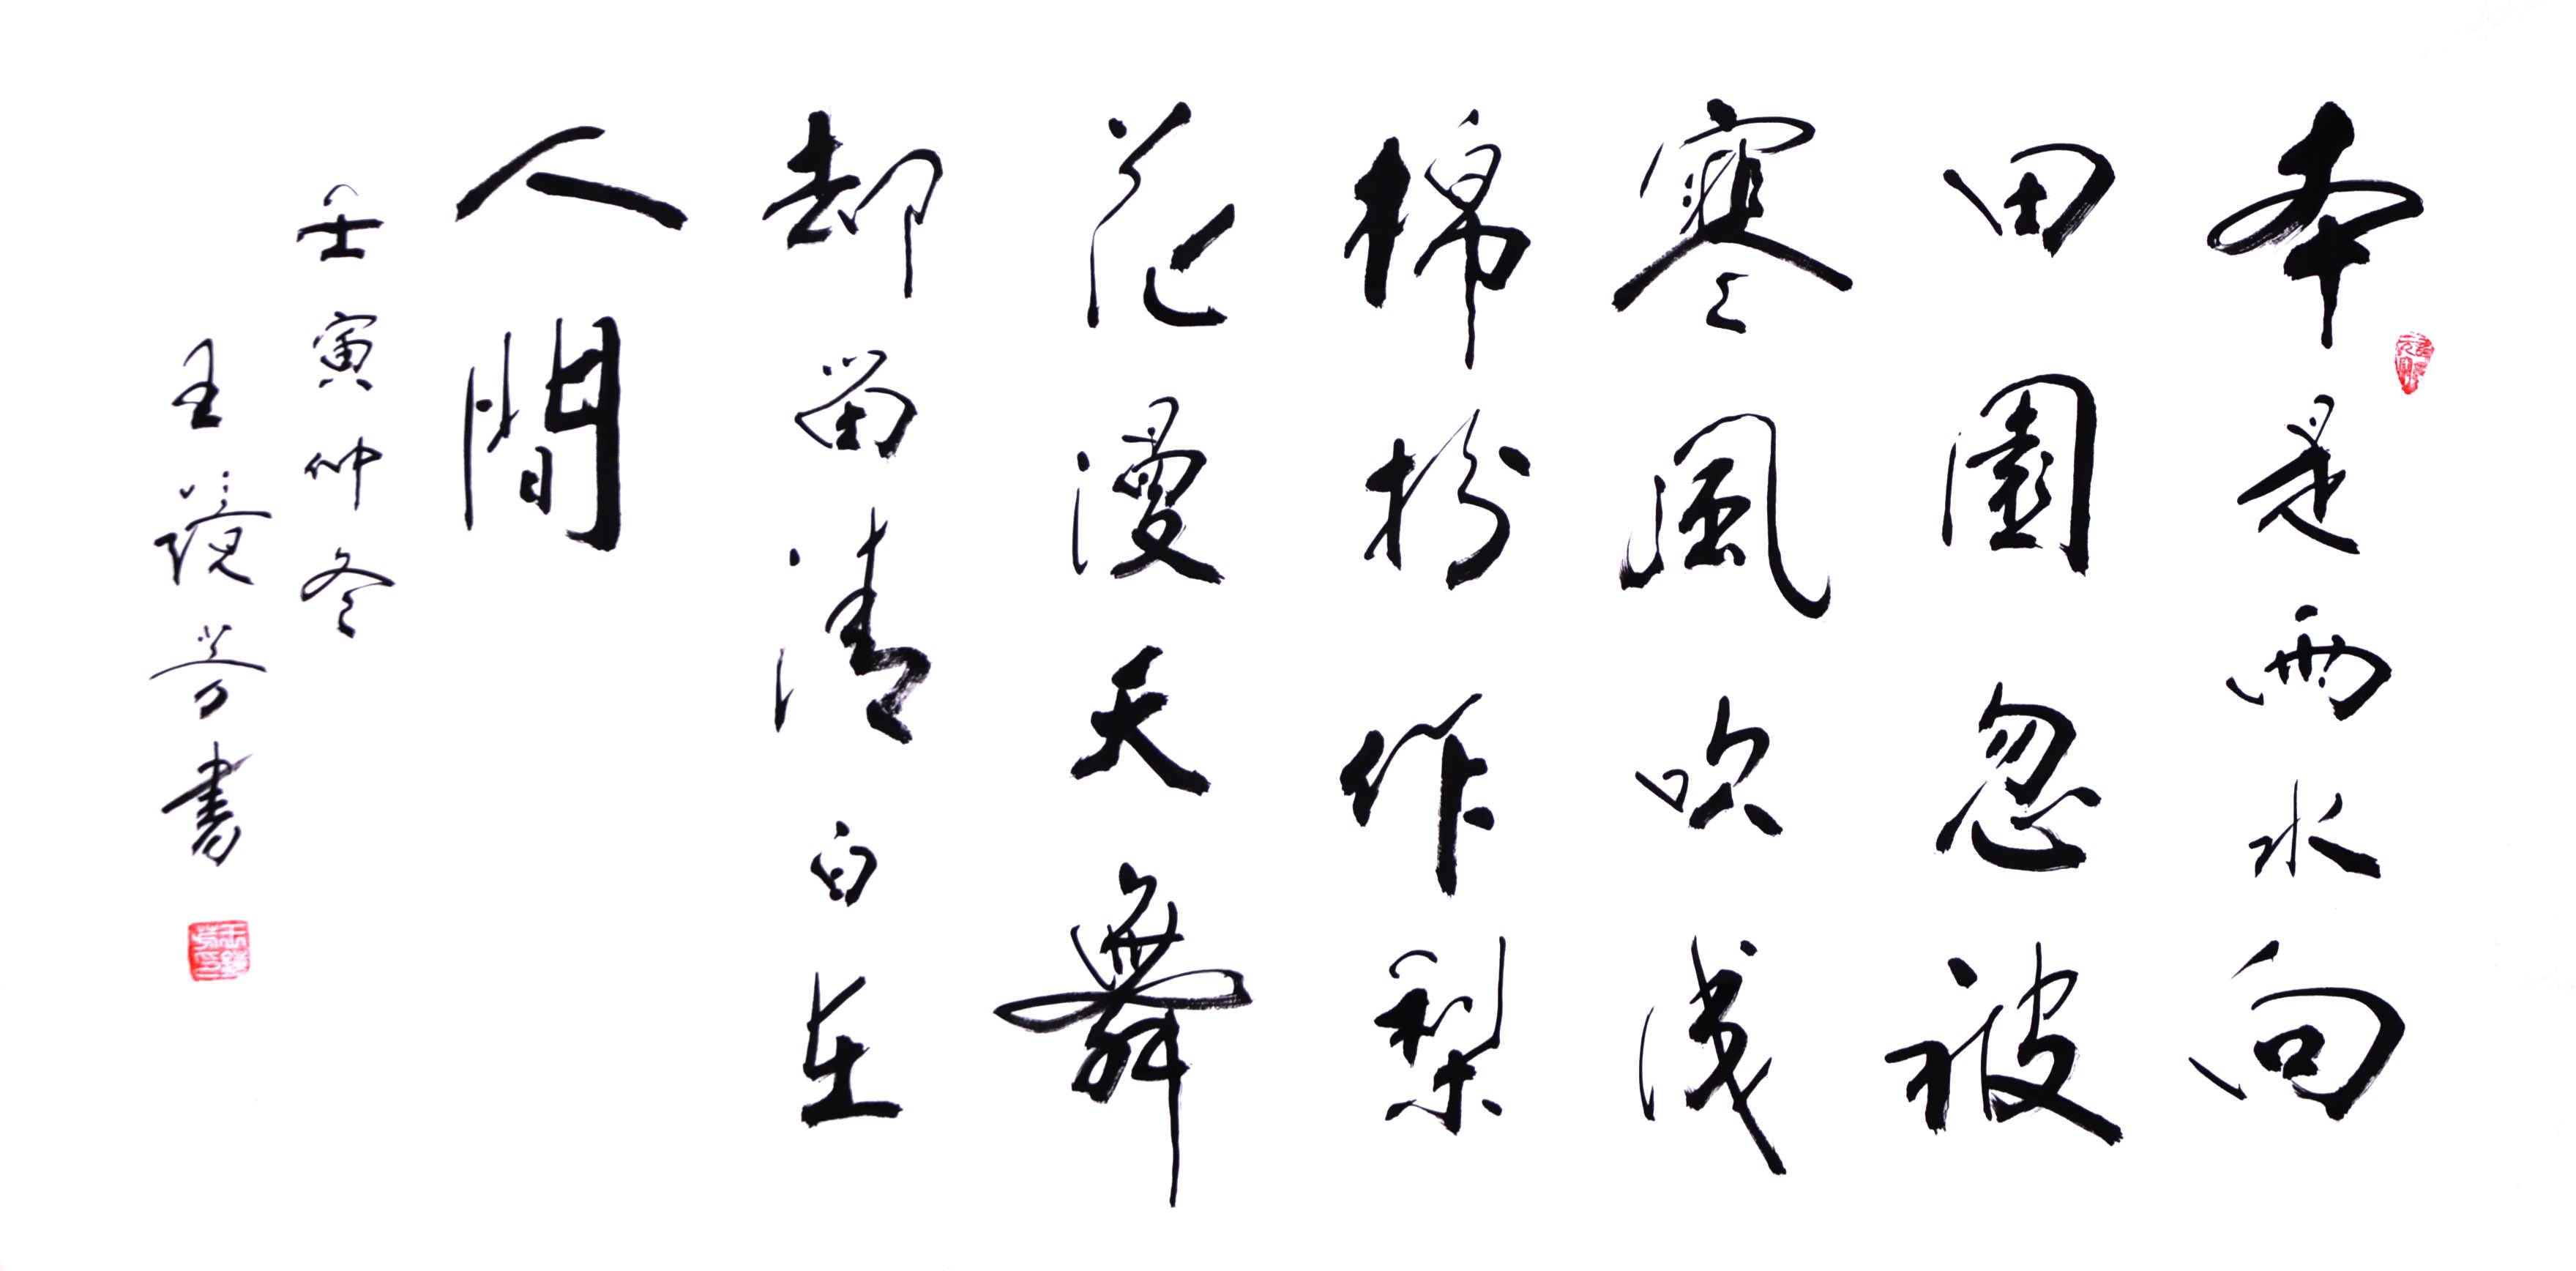 本是雨水向
田園忽被
寒風吹浅
棉扮作梨
花漫天舞
却留清白在
人間
壬寅仲冬
王鏡芳書